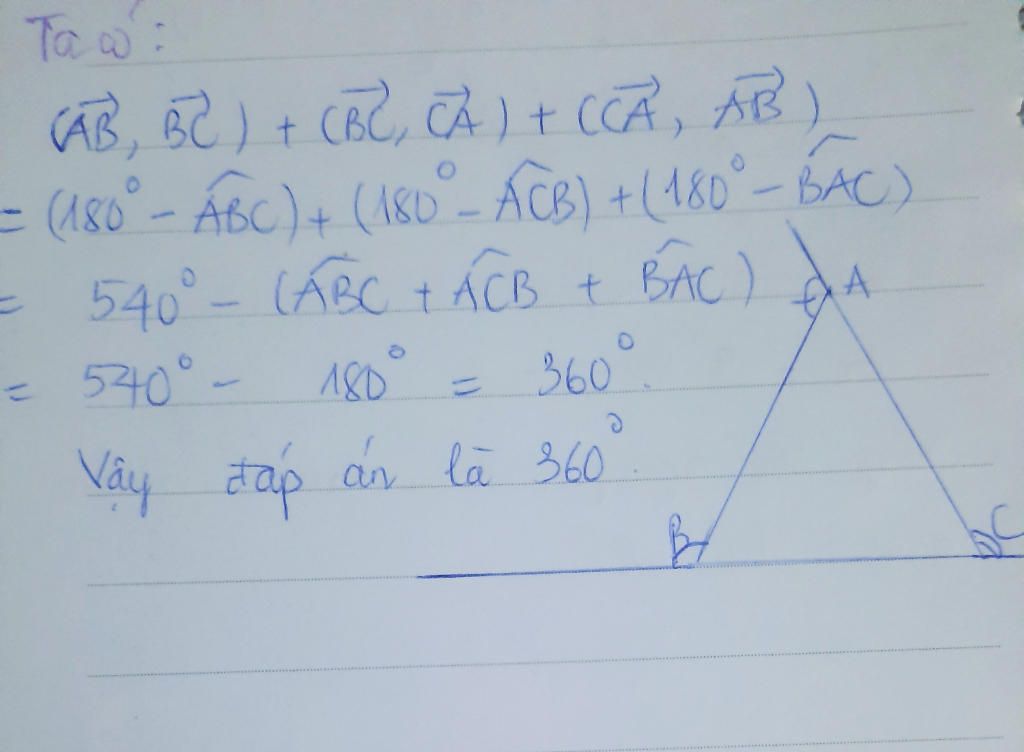 Ta có:
(→AB, →BC) + (→BC, →CA) + (→CA, →AB)
= (180° - ^ABC) + (180° - ^ACB) + (180° - ^BAC)
= 540° - (^ABC + ^ACB + ^BAC)
= 540° - 180° = 360°.
Vậy đáp án là 360°.
A
B
C